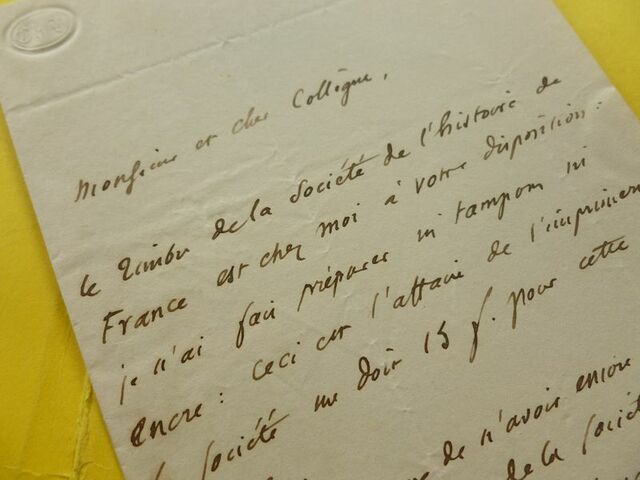 Monsieur et cher Collègue,
le timbre de la Société de l'histoire de
France est chez moi à votre disposition :
je n'ai fait préparer ni tampon ni
encre : Ceci est l'affaire de l'imprimeur
la Société me doit 15 f. pour cette
de n'avoir encore
de la Société